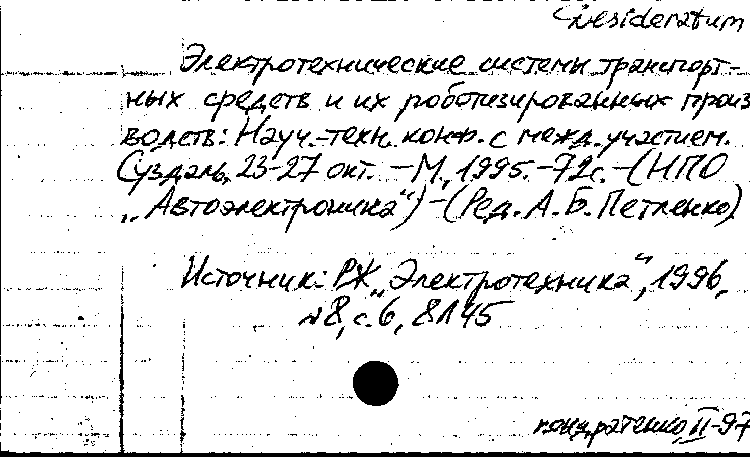 Desideratum
Электротехнические системы транспорт-
ных средств и их роботизированных произ
водств: Науч.-техн. конф. с межд. участием.
Суздаль, 23-27 окт. – М., 1995. – 72с. – (НПО
„Автоэлектроника“) – (Ред. А. Б. Петленко)
Источник: РЖ „Электротехника“, 1996,
№8, с. 6, 8Л45
Кондратенко, II-97